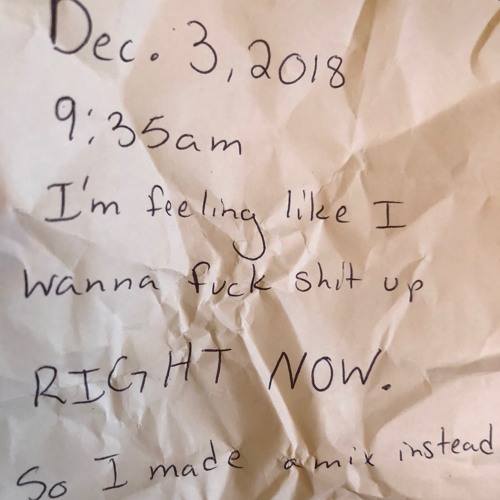 Dec. 3, 2018
9:35am
I'm feeling like I
wanna fuck shit up
RIGHT NOW.
So I made a mix instead